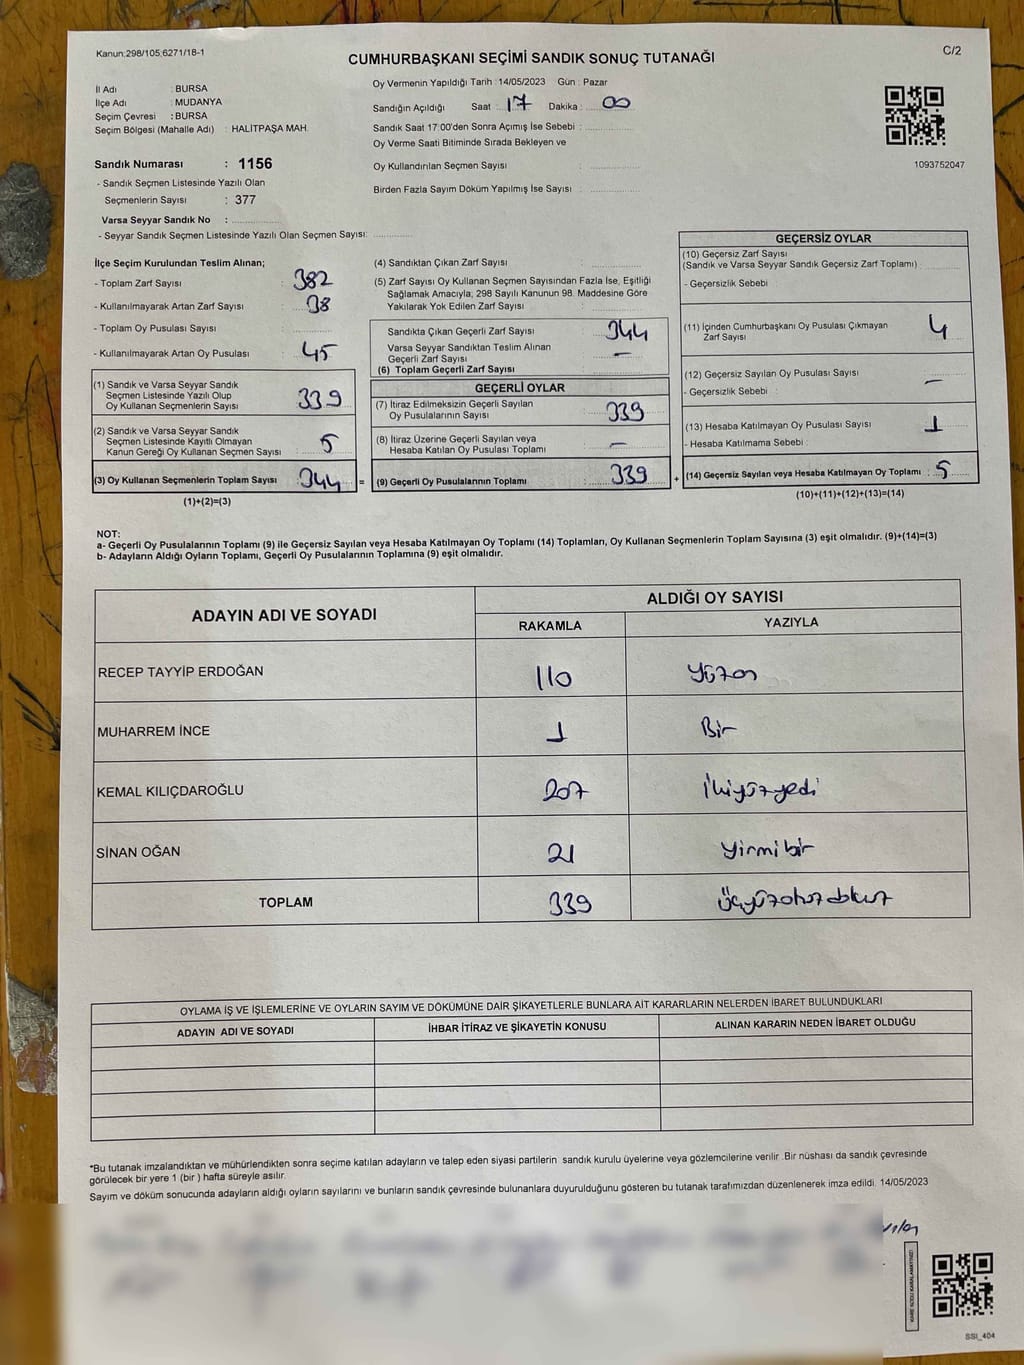 Kanun:298/105,6271/18-1
CUMHURBAŞKANI SEÇİMİ SANDIK SONUÇ TUTANAĞI
C/2
İl Adı : BURSA
İlçe Adı : MUDANYA
Seçim Çevresi : BURSA
Seçim Bölgesi (Mahalle Adı) : HALİTPAŞA MAH.
Oy Vermenin Yapıldığı Tarih : 14/05/2023 Gün : Pazar
Sandığın Açıldığı Saat : 17 Dakika : 00
Sandık Saat 17:00'den Sonra Açımış İse Sebebi :
Oy Verme Saati Bitiminde Sırada Bekleyen ve
Oy Kullandırılan Seçmen Sayısı :
Birden Fazla Sayım Döküm Yapılmış İse Sayısı :
1093752047
Sandık Numarası : 1156
- Sandık Seçmen Listesinde Yazılı Olan
Seçmenlerin Sayısı : 377
Varsa Seyyar Sandık No :
- Seyyar Sandık Seçmen Listesinde Yazılı Olan Seçmen Sayısı:
İlçe Seçim Kurulundan Teslim Alınan;
- Toplam Zarf Sayısı : 382
- Kullanılmayarak Artan Zarf Sayısı : 38
- Toplam Oy Pusulası Sayısı :
- Kullanılmayarak Artan Oy Pusulası : 45
(1) Sandık ve Varsa Seyyar Sandık
Seçmen Listesinde Yazılı Olup
Oy Kullanan Seçmenlerin Sayısı : 339
(2) Sandık ve Varsa Seyyar Sandık
Seçmen Listesinde Kayıtlı Olmayan
Kanun Gereği Oy Kullanan Seçmen Sayısı : 5
(3) Oy Kullanan Seçmenlerin Toplam Sayısı : 344 =
(1)+(2)=(3)
(4) Sandıktan Çıkan Zarf Sayısı :
(5) Zarf Sayısı Oy Kullanan Seçmen Sayısından Fazla İse, Eşitliği
Sağlamak Amacıyla; 298 Sayılı Kanunun 98. Maddesine Göre
Yakılarak Yok Edilen Zarf Sayısı :
Sandıkta Çıkan Geçerli Zarf Sayısı : 344
Varsa Seyyar Sandıktan Teslim Alınan
Geçerli Zarf Sayısı : —
(6) Toplam Geçerli Zarf Sayısı :
GEÇERLİ OYLAR
(7) İtiraz Edilmeksizin Geçerli Sayılan
Oy Pusulalarının Sayısı : 339
(8) İtiraz Üzerine Geçerli Sayılan veya
Hesaba Katılan Oy Pusulası Toplamı : —
(9) Geçerli Oy Pusulalarının Toplamı : 339 +
GEÇERSİZ OYLAR
(10) Geçersiz Zarf Sayısı
(Sandık ve Varsa Seyyar Sandık Geçersiz Zarf Toplamı) :
- Geçersizlik Sebebi :
(11) İçinden Cumhurbaşkanı Oy Pusulası Çıkmayan
Zarf Sayısı : 4
(12) Geçersiz Sayılan Oy Pusulası Sayısı : —
- Geçersizlik Sebebi :
(13) Hesaba Katılmayan Oy Pusulası Sayısı : 1
- Hesaba Katılmama Sebebi :
(14) Geçersiz Sayılan veya Hesaba Katılmayan Oy Toplamı : 5
(10)+(11)+(12)+(13)=(14)
NOT:
a- Geçerli Oy Pusulalarının Toplamı (9) ile Geçersiz Sayılan veya Hesaba Katılmayan Oy Toplamı (14) Toplamları, Oy Kullanan Seçmenlerin Toplam Sayısına (3) eşit olmalıdır. (9)+(14)=(3)
b- Adayların Aldığı Oyların Toplamı, Geçerli Oy Pusulalarının Toplamına (9) eşit olmalıdır.
ADAYIN ADI VE SOYADI
ALDIĞI OY SAYISI
RAKAMLA YAZIYLA
RECEP TAYYİP ERDOĞAN 110 Yüzon
MUHARREM İNCE 1 Bir
KEMAL KILIÇDAROĞLU 207 İkiyüzyedi
SİNAN OĞAN 21 Yirmibir
TOPLAM 339 Üçyüzotuzdokuz
OYLAMA İŞ VE İŞLEMLERİNE VE OYLARIN SAYIM VE DÖKÜMÜNE DAİR ŞİKAYETLERLE BUNLARA AİT KARARLARIN NELERDEN İBARET BULUNDUKLARI
ADAYIN ADI VE SOYADI İHBAR İTİRAZ VE ŞİKAYETİN KONUSU ALINAN KARARIN NEDEN İBARET OLDUĞU
*Bu tutanak imzalandıktan ve mühürlendikten sonra seçime katılan adayların ve talep eden siyasi partilerin sandık kurulu üyelerine veya gözlemcilerine verilir .Bir nüshası da sandık çevresinde
görülecek bir yere 1 (bir ) hafta süreyle asılır.
Sayım ve döküm sonucunda adayların aldığı oyların sayılarını ve bunların sandık çevresinde bulunanlara duyurulduğunu gösteren bu tutanak tarafımızdan düzenlenerek imza edildi. 14/05/2023
SSI_404